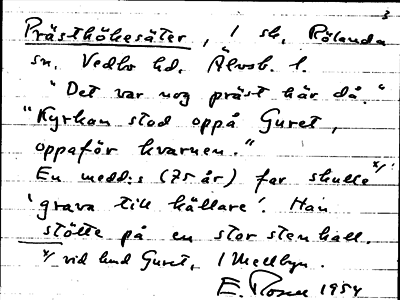 3
Prästhökesäter, 1 sk, Rölanda
sn, Vedbo hd. Älvsb. l.
"Det var nog präst här då."
"Kyrkan stod oppå Guret,
oppaför kvarnen."
En medd:s (75 år) far skulle x/
'grava till källare'. Han
stötte på en stor sten häll.
x/ vid Guret, 1 Mellbyn.
E. Rosell 1954